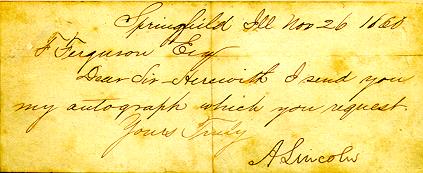 Springfield Ill Nov 26 1860
F Ferguson Esq
Dear Sir - Herewith I send you
my autograph which you request.
Yours Truly
A Lincoln